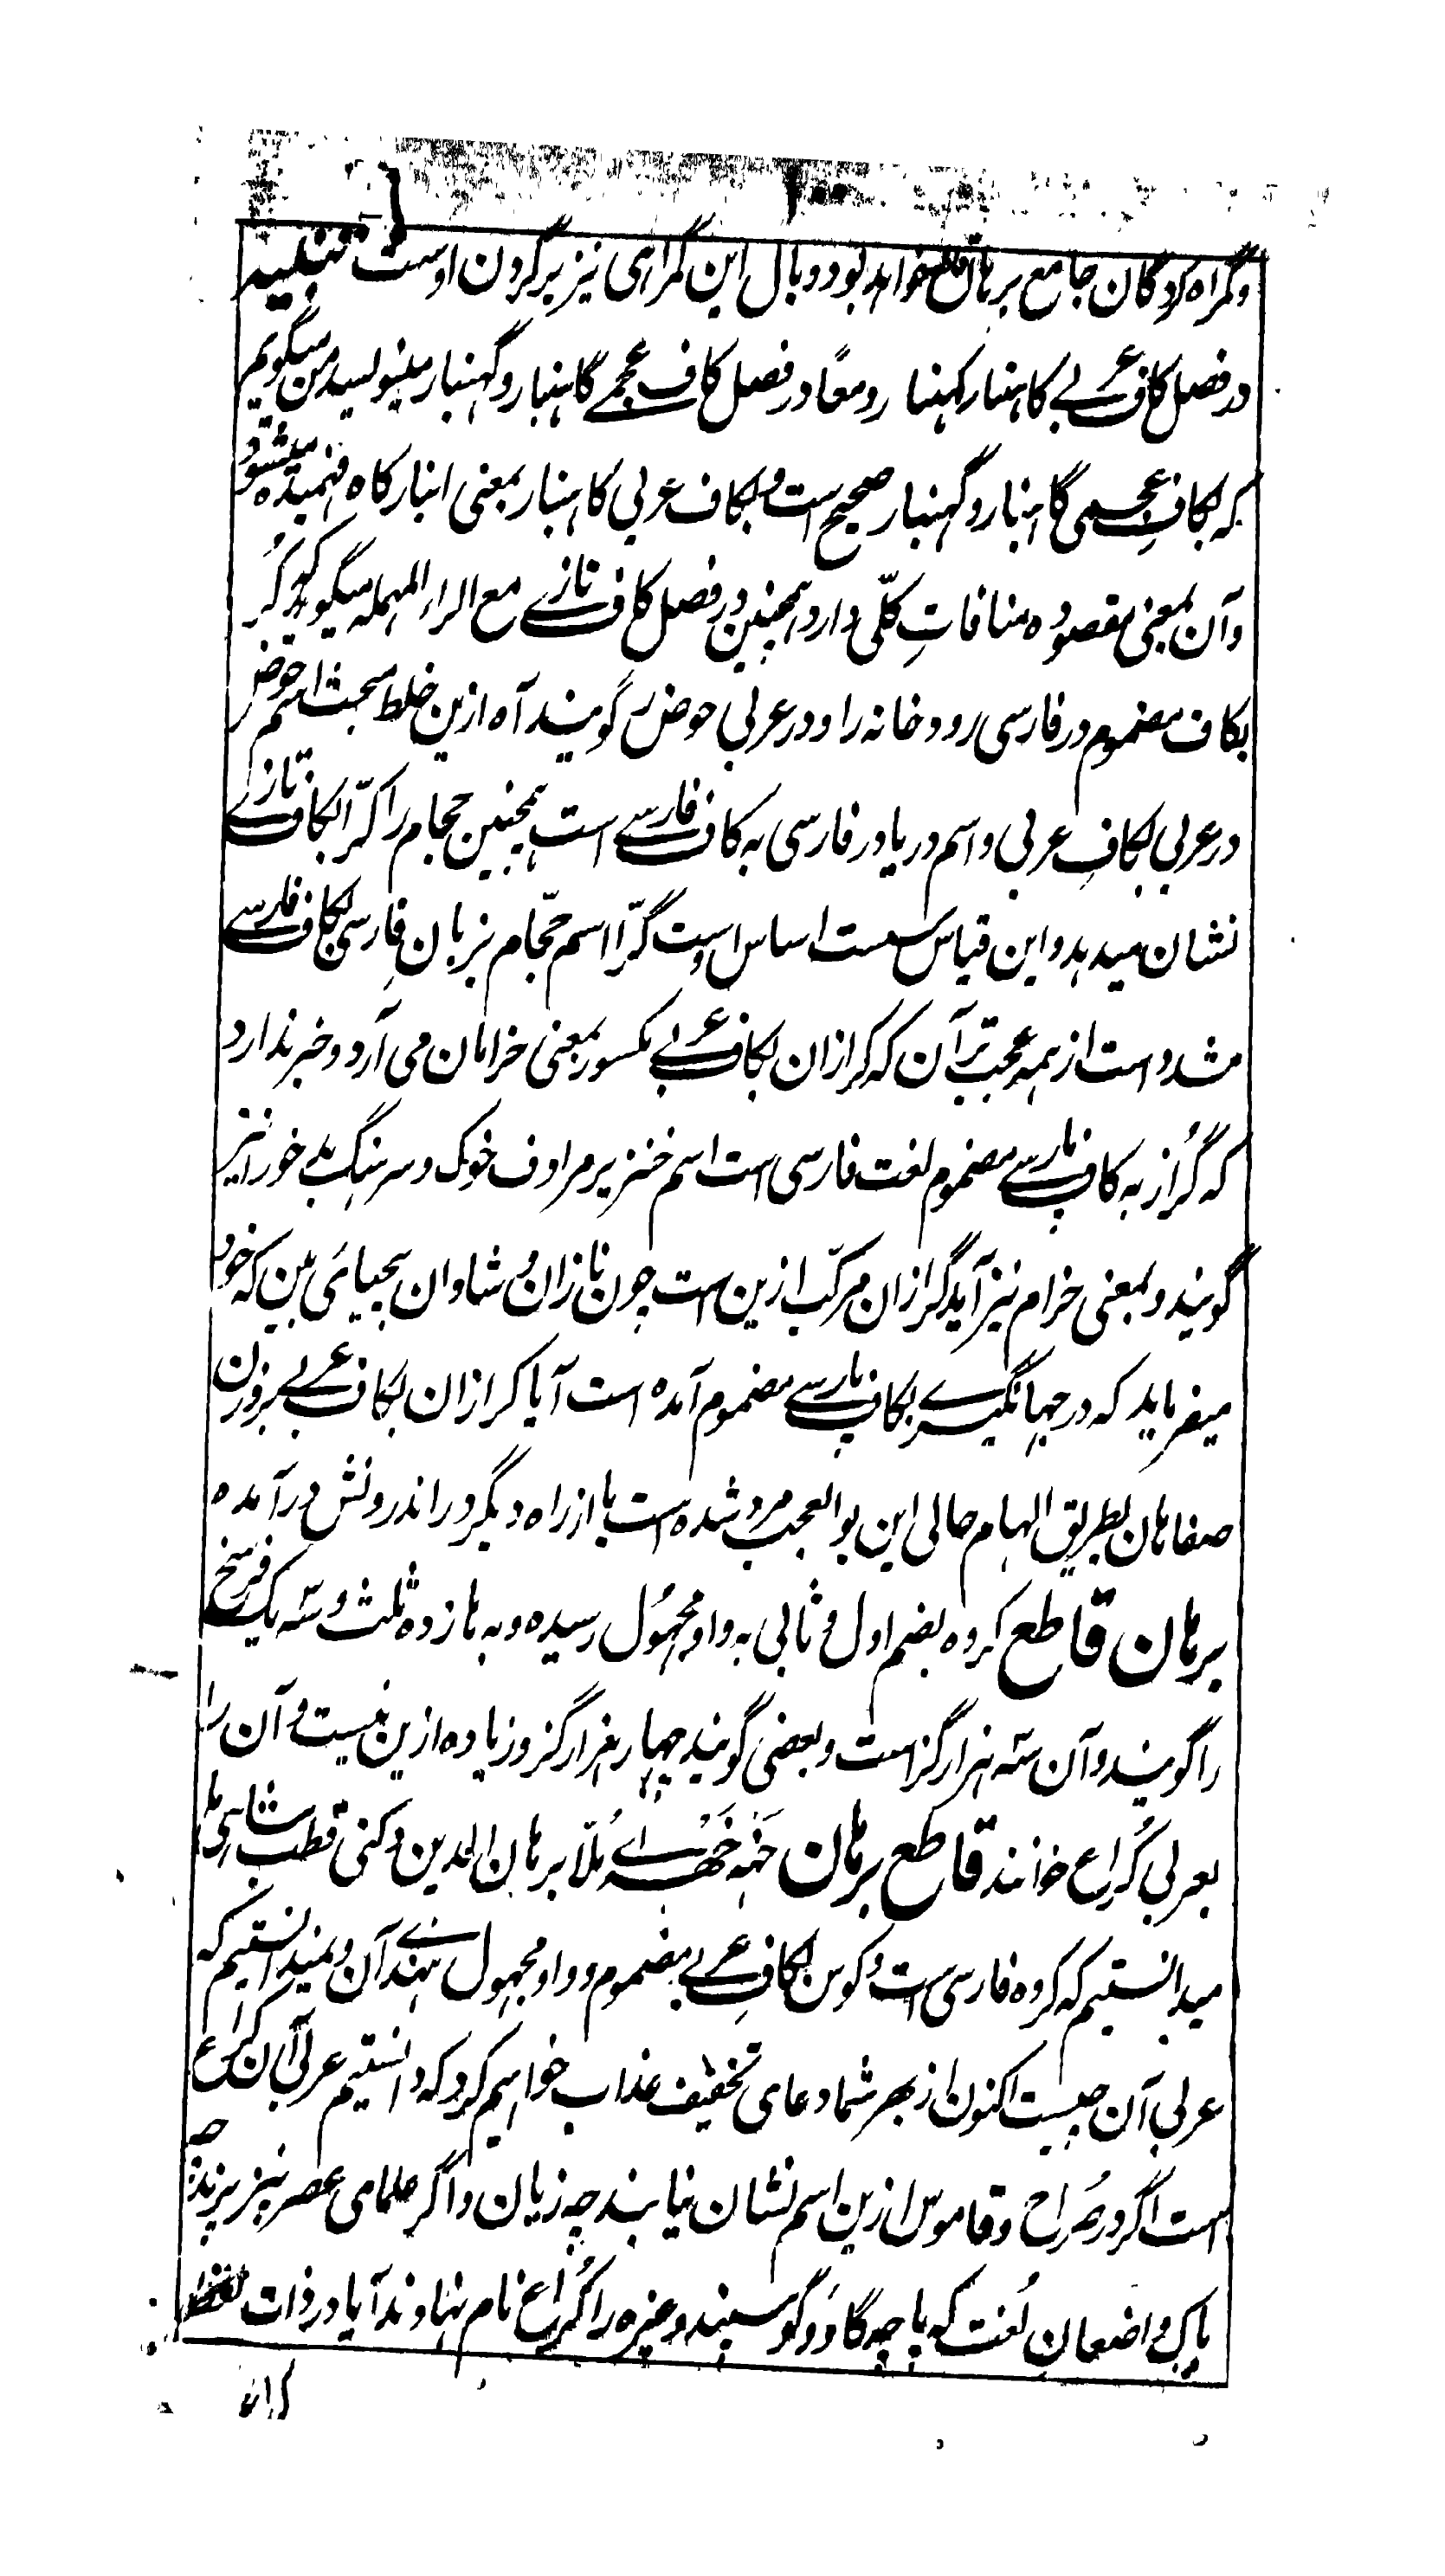 وگمراه کردگان جامع برهان قاطع خواهد بود و وبال این گمراهی نیز برگردن اوست تنبیه
در فصل کاف عربی کاهنبار کهنبار و معاً در فصل کاف عجمی گاهنبار و گهنبار مینویسد من میگویم
که بکاف عجمی گاهنبار و گهنبار صحیح است و بکاف عربی کاهنبار بمعنی انبار کاه فهمیده میشود
و آن بمعنی مقصوده منافات کلّی دارد همچنین در فصل کاف تازی مع الراء المهمله میگوید که کُر
بکاف مضموم در فارسی رودخانه را و در عربی حوض را گویند آه ازین خلط مبحث اسم حوض
در عربی بکاف عربی و اسم دریا در فارسی به کاف فارسی است همچنین حجام را کرّا بکاف تازی
نشان میدهد و این قیاس سست اساس اوست گرّا اسم حجّام بزبان فارسی بکاف فارسی
مشدد است از همه عجب تر آن که کرازان بکاف عربی مکسور بمعنی خرامان می آرد و خبر ندارد
که گُراز به کاف پارسی مضموم لغت فارسی است اسم خنزیر مرادف خوک و سرهنگ بلے خور انیز
گویند و بمعنی خرام نیز آید گرازان مرکّب ازین ست چون نازان و شادان بیحیائی بین که خود
میفرماید که در جهانگیری بکاف پارسی مضموم آمده است آیا کرازان بکاف عربی بروزن
صفاهان بطریق الهام حالی این بوالعجب مرد شده است یا از راه دیگر در اندرونش درآمده
برهان قاطع کروه بضم اول و ثانی به واو مجهول رسیده و به ها زده ثلث و سه یک فرسخ
را گویند و آن سه هزار گز است و بعضی گویند چهار هزار گز و زیاده ازین نیست و آن را
بعربی کُراع خوانند قاطع برهان خَهْ خَهْ اے مُلّا برهان الدین دکنی قطب شاهی ما
میدانستیم که کروه فارسی است و کوس بکاف عربی مضموم و واو مجهول هندی آن و نمیدانستیم که
عربی آن چیست اکنون از بهر شما دعای تخفیف عذاب خواهیم کرد که دانستیم عربی آن کُراع
است اگر در صُراح و قاموس ازین اسم نشان نیابند چه زیان و اگر علمای عصر نیز پذیرند چه
باک واضعان لُغت که پاچه گاو و گوسپند و غیره را کُراع نام نهادند آیا در ذات لفظ